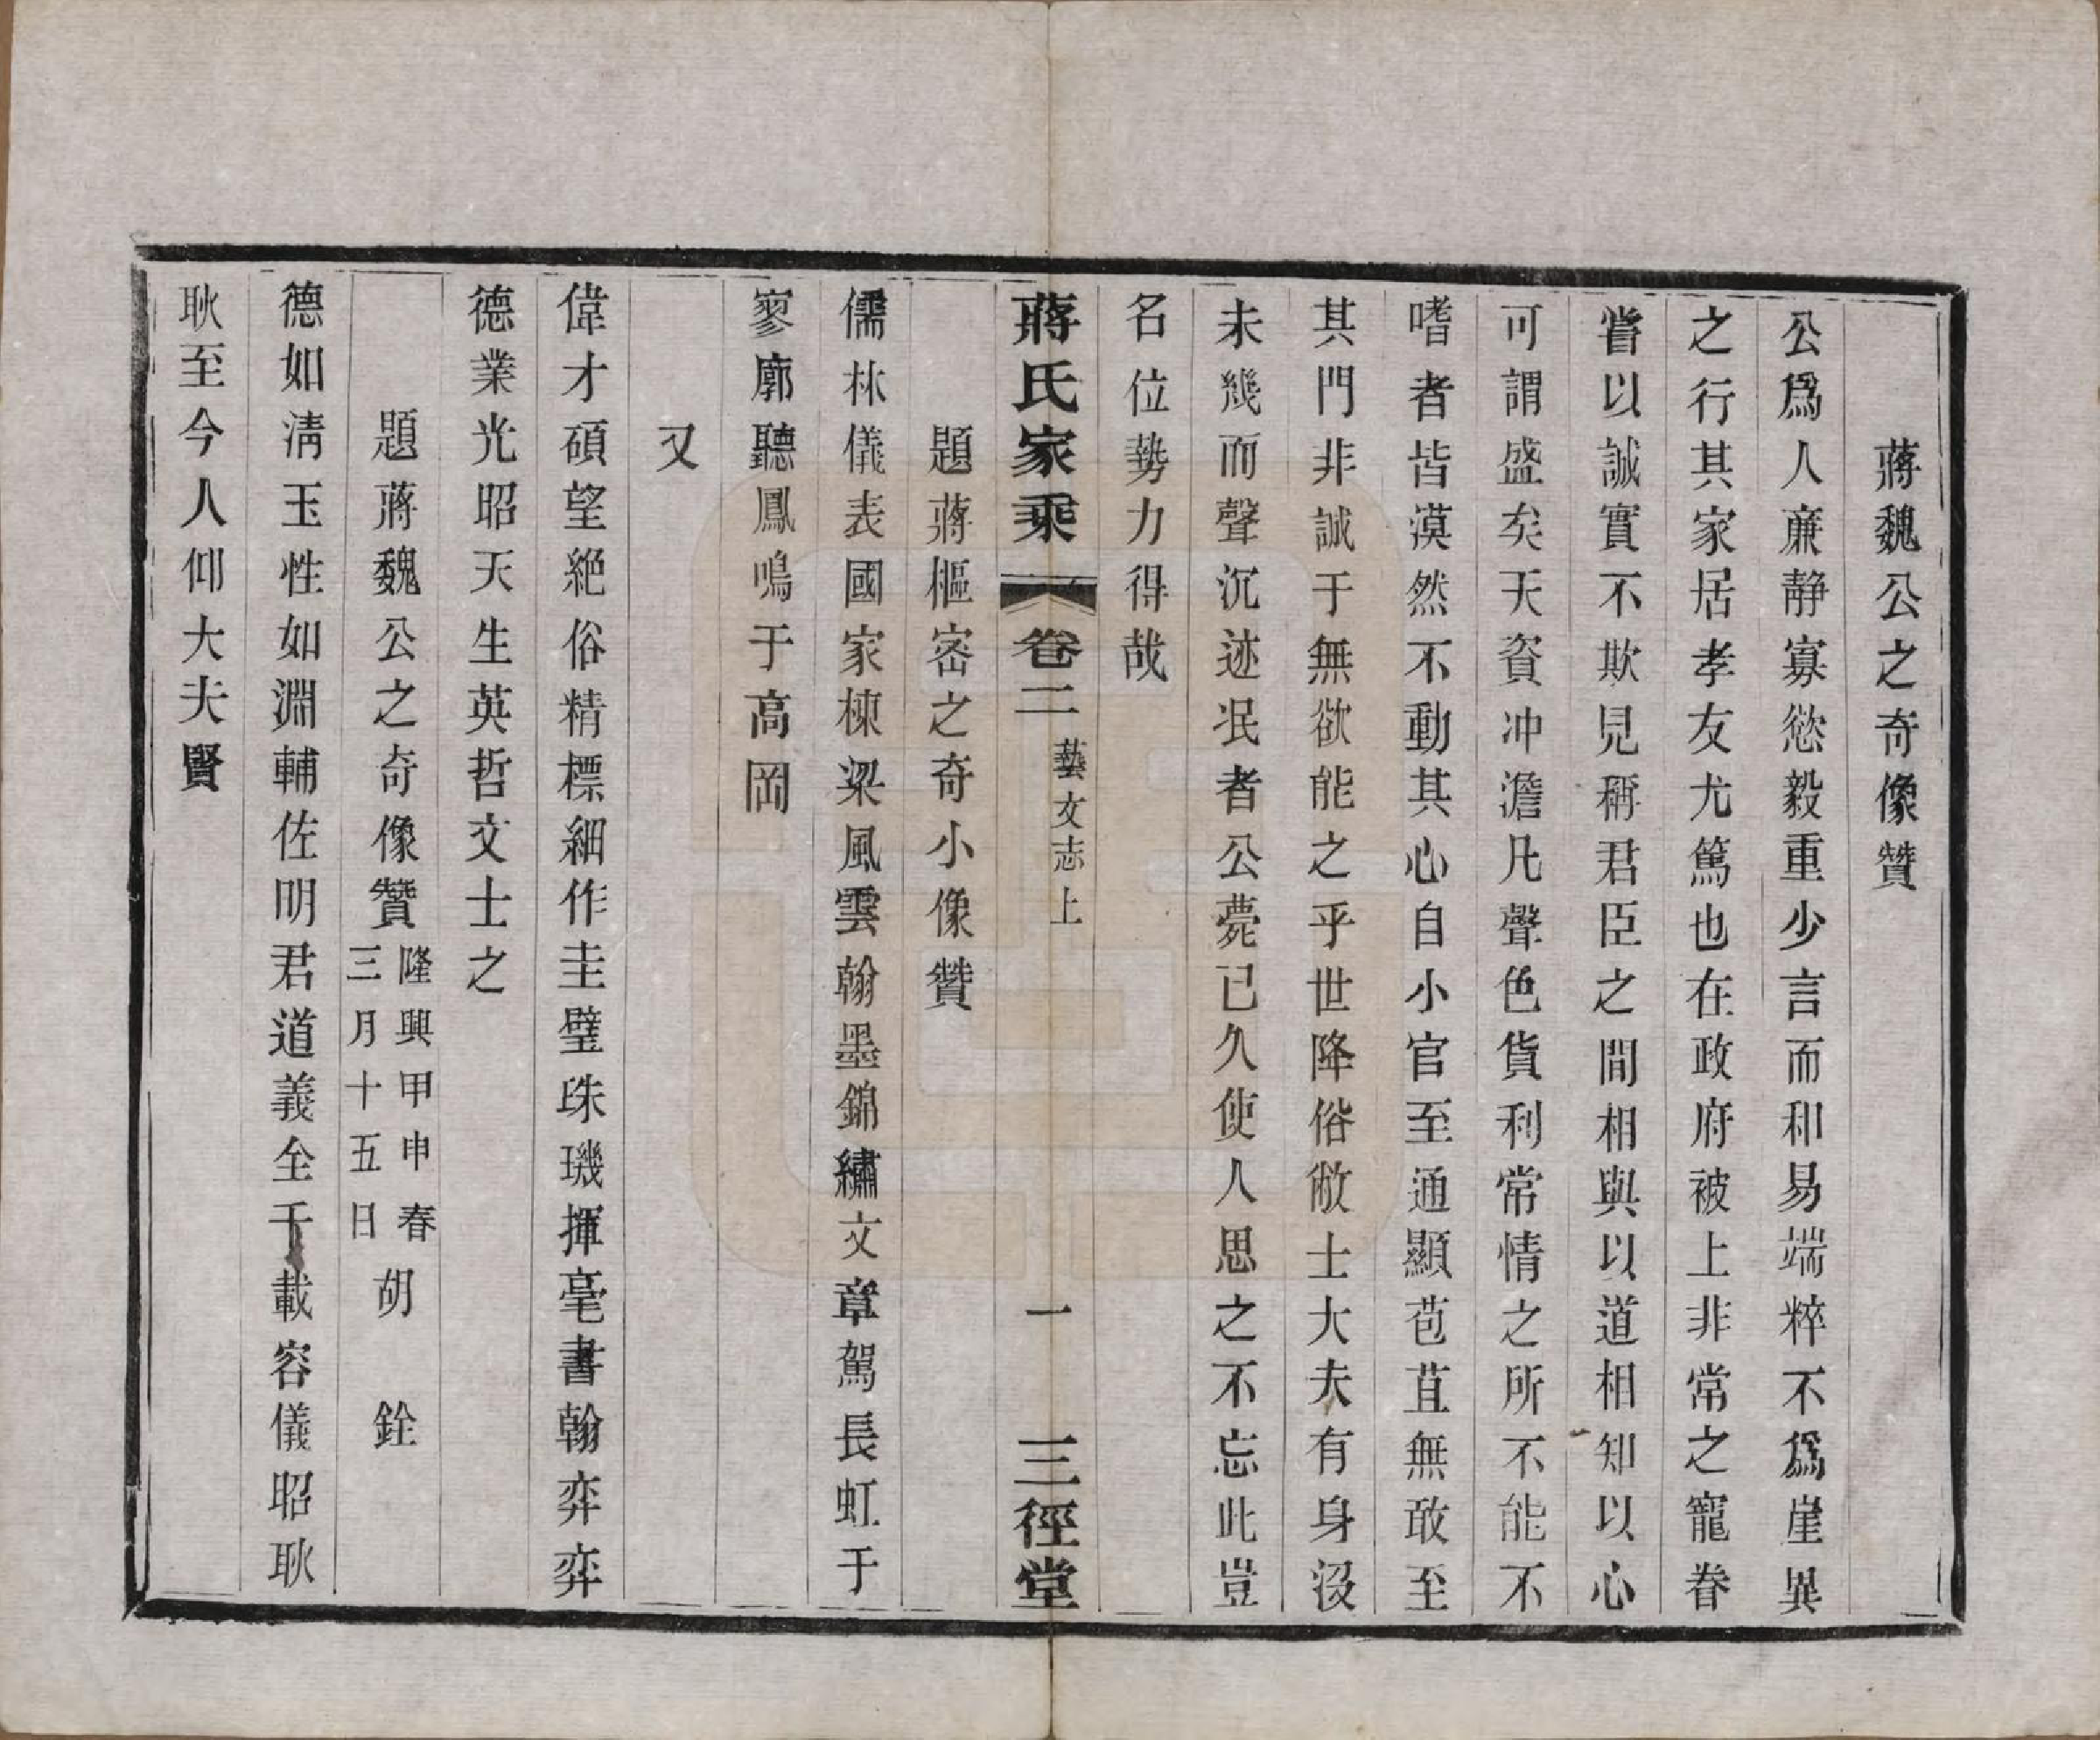 蔣魏公之奇像贊
公爲人廉靜寡慾毅重少言而和易端粹不爲崖異
之行其家居孝友尤篤也在政府被上非常之寵眷
嘗以誠實不欺見稱君臣之間相與以道相知以心
可謂盛矣天資冲澹凡聲色貨利常情之所不能不
嗜者皆漠然不動其心自小官至通顯苞苴無敢至
其門非誠于無欲能之乎世降俗敝士大夫有身沒
未幾而聲沉迹泯者公薨已久使人思之不忘此豈
名位勢力得哉
蔣氏家乘 卷二 藝文志上 一 三徑堂
題蔣樞密之奇小像贊
儒林儀表國家棟梁風雲翰墨錦繡文章駕長虹于
寥廓聽鳳鳴于高岡
又
偉才碩望絕俗精標細作圭璧珠璣揮毫書翰弈弈
德業光昭天生英哲文士之
題蔣魏公之奇像贊 隆興甲申春三月十五日 胡銓
德如淸玉性如淵輔佐明君道義全千載容儀昭耿
耿至今人仰大夫賢